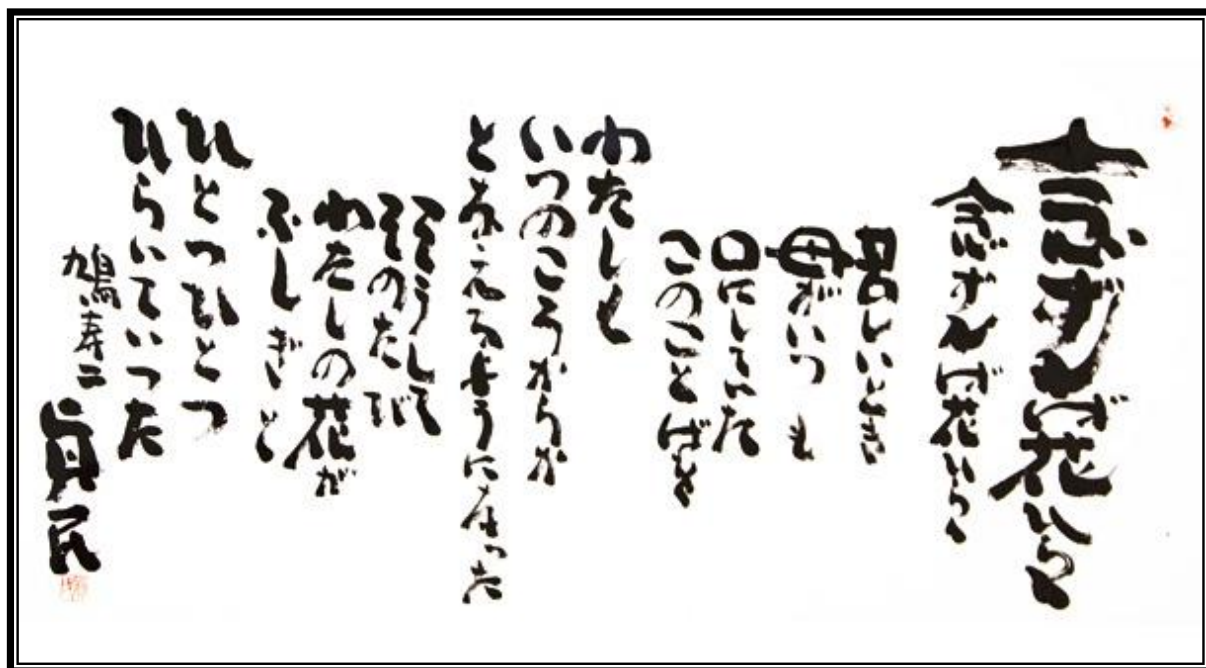 念ずれば花ひらく
念ずれば花ひらく
苦しいとき
母がいつも
口にしていた
このことばを
わたしも
いつのころからか
となえるようになった
そうして
そのたび
わたしの花が
ふしぎと
ひとつひとつ
ひらいていった
鳩寿二 真民